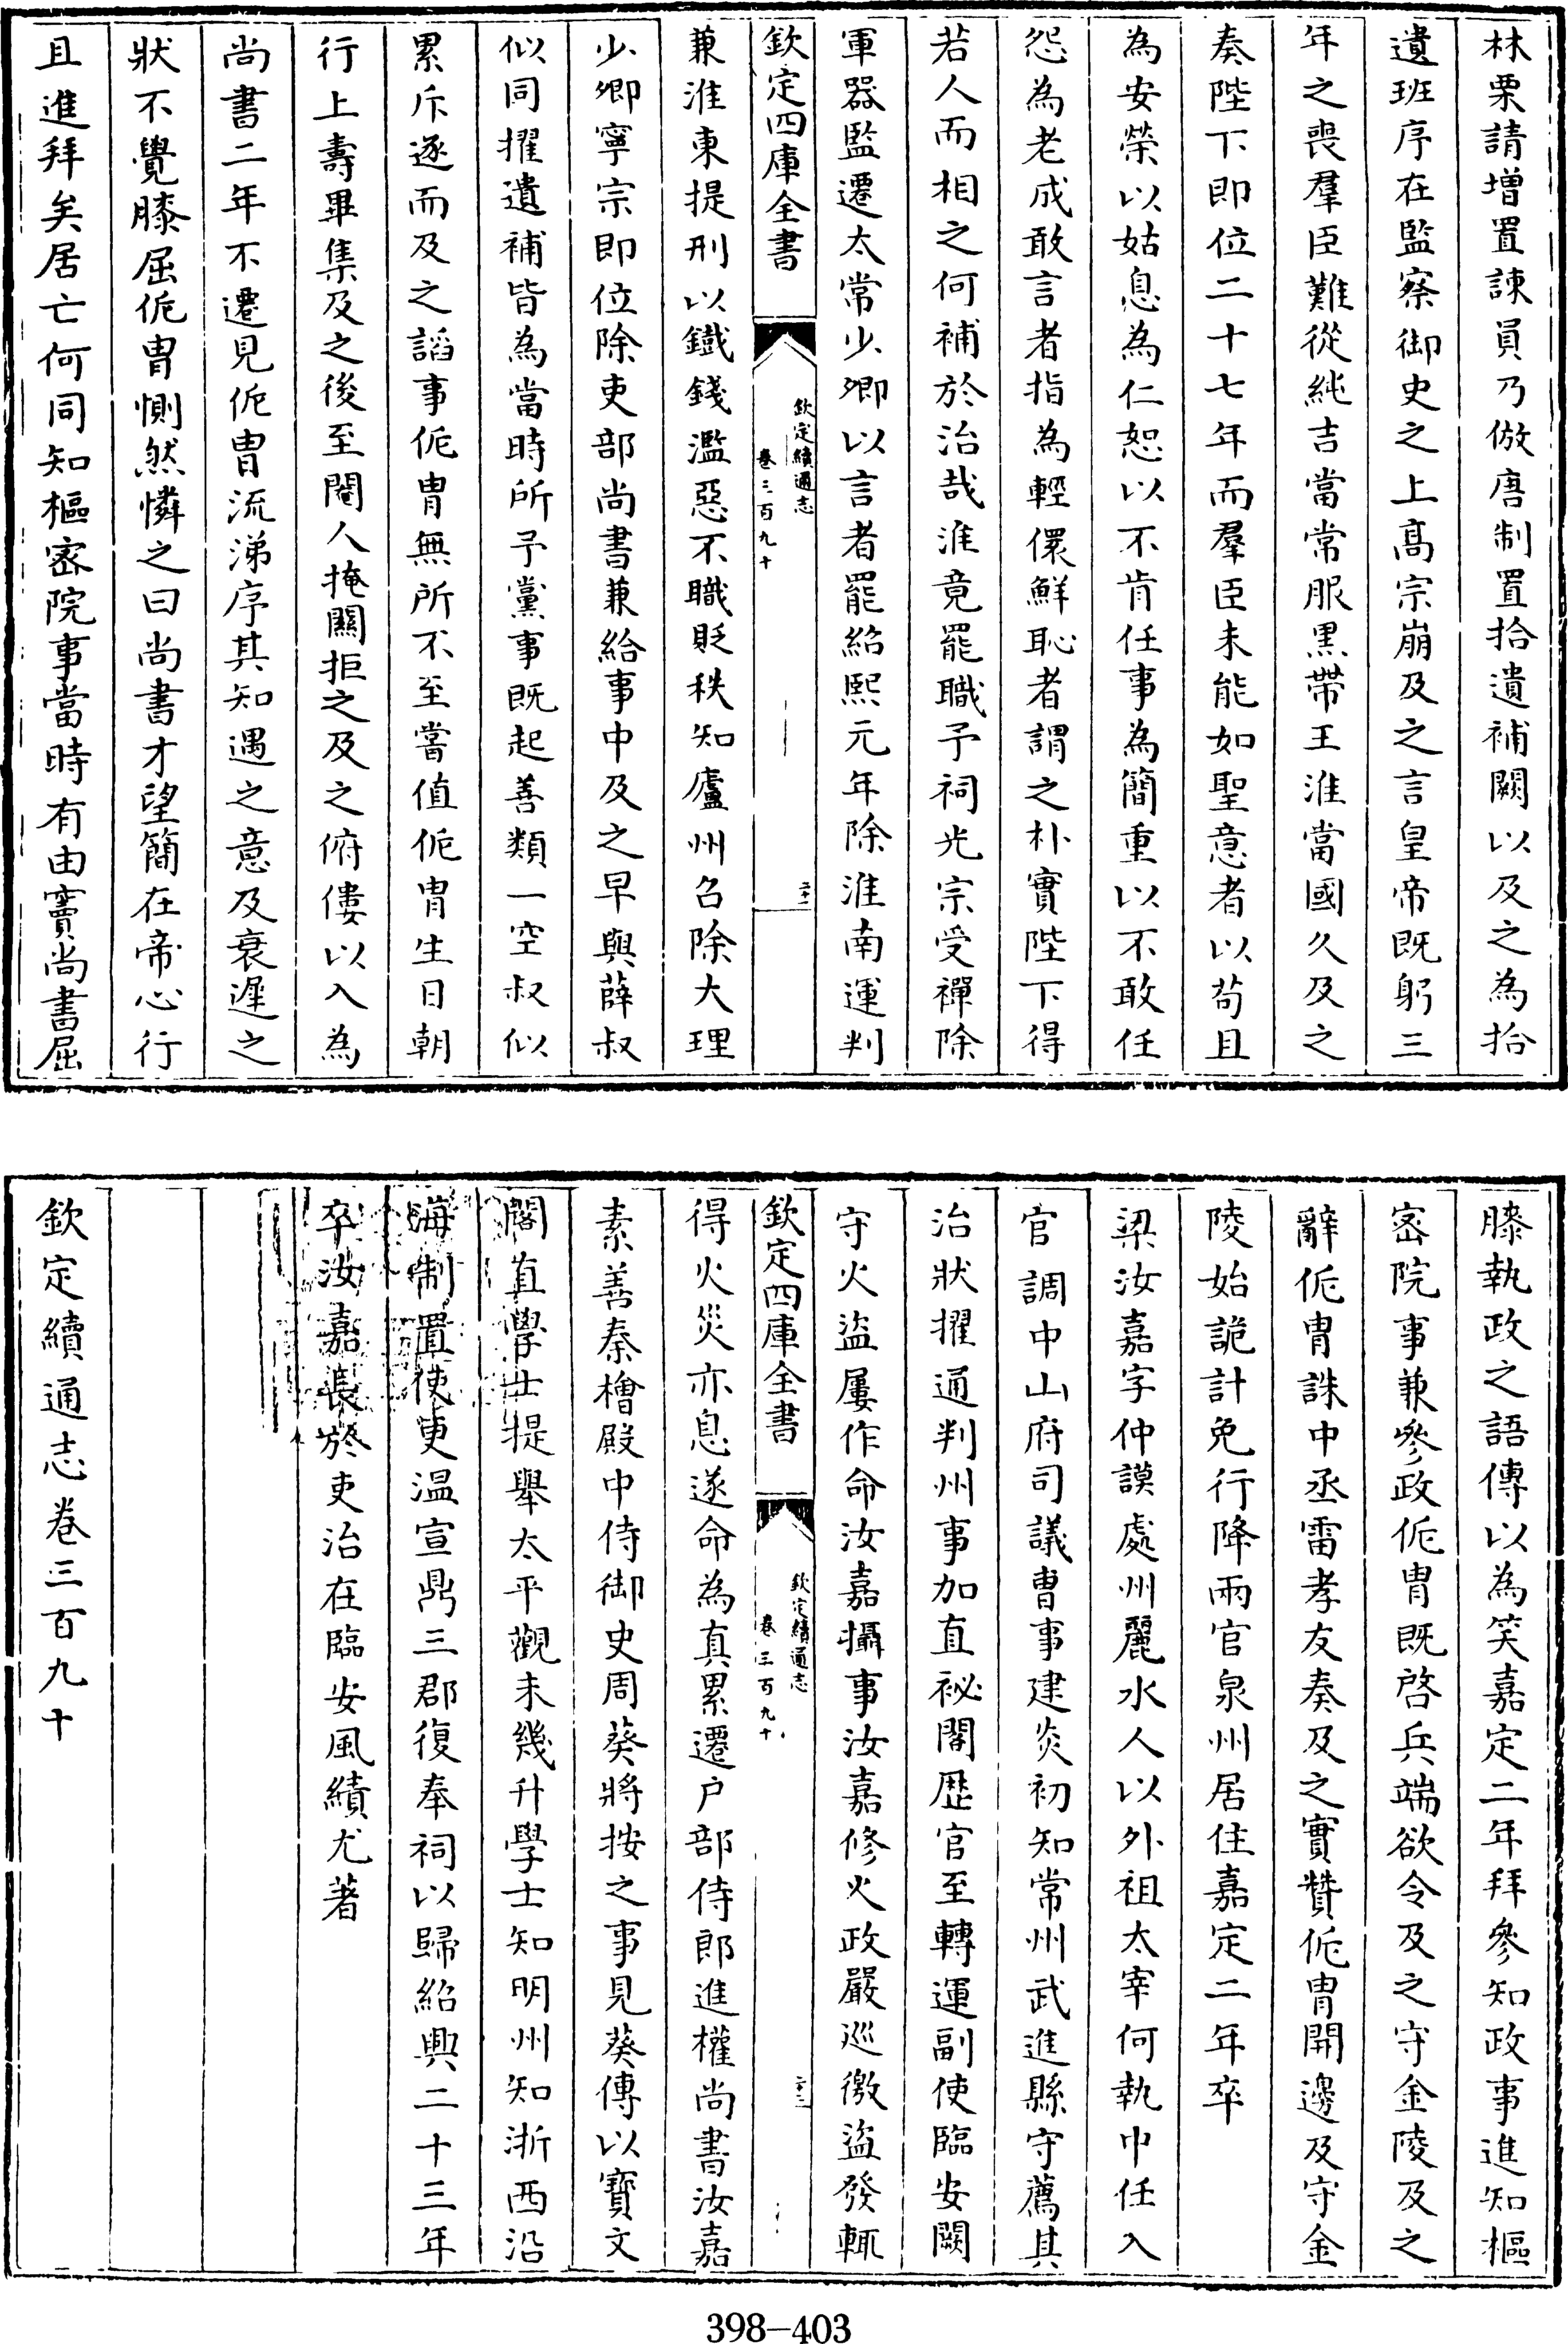 林栗請増置諫員乃倣唐制置拾遺補闕以及之為拾
遺班序在監察御史之上髙宗崩及之言皇帝既躬三
年之喪羣臣難從純吉當常服黒帶王淮當國久及之
奏陛下即位二十七年而羣臣未能如聖意者以苟且
為安榮以姑息為仁恕以不肯任事為簡重以不敢任
怨為老成敢言者指為輕儇鮮恥者謂之朴實陛下得
若人而相之何補於治哉淮竟罷職予祠光宗受禪除
軍器監遷太常少卿以言者罷紹熙元年除淮南運判
欽定四庫全書
欽定續通志
卷三百九十
二十一
兼淮東提刑以鐵錢濫惡不職貶秩知廬州召除大理
少卿寧宗即位除吏部尚書兼給事中及之早與薛叔
似同擢遺補皆為當時所予黨事既起善類一空叔似
累斥逐而及之諂事侂胄無所不至嘗值侂胄生日朝
行上壽畢集及之後至閽人掩關拒之及之俯僂以入為
尚書二年不遷見侂胄流涕序其知遇之意及衰遲之
狀不覺膝屈侂胄惻然憐之曰尚書才望簡在帝心行
且進拜矣居亡何同知樞密院事當時有由竇尚書屈
膝執政之語傳以為笑嘉定二年拜參知政事進知樞
密院事兼參政侂胄既啓兵端欲令及之守金陵及之
辭侂胄誅中丞雷孝友奏及之實贊侂胄開邊及守金
陵始詭計免行降兩官泉州居住嘉定二年卒
梁汝嘉字仲謨處州麗水人以外祖太宰何執中任入
官調中山府司議曹事建炎初知常州武進縣守薦其
治狀擢通判州事加直祕閣歴官至轉運副使臨安闕
守火盜屢作命汝嘉攝事汝嘉修火政嚴巡徼盜發輒
欽定四庫全書
欽定續通志
卷三百九十
二十二
得火災亦息遂命為真累遷户部侍郎進權尚書汝嘉
素善秦檜殿中侍御史周葵將按之事見葵傳以寶文
閣直學士提舉太平觀未幾升學士知明州知浙西沿
海制置使更温宣鼎三郡復奉祠以歸紹興二十三年
卒汝嘉長於吏治在臨安風績尤著
欽定續通志卷三百九十
398-403